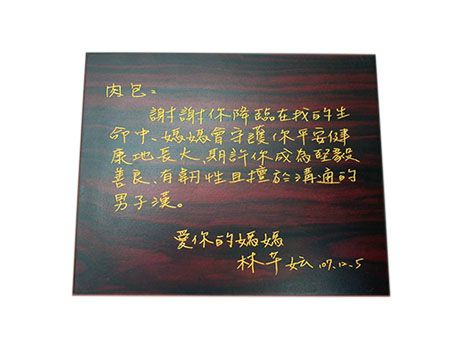 肉包：
謝謝你降臨在我的生
命中、媽媽會守護你平安健
康地長大，期許你成為堅毅
善良、有韌性且擅於溝通的
男子漢。
愛你的媽媽
林芊妘 107.12.5